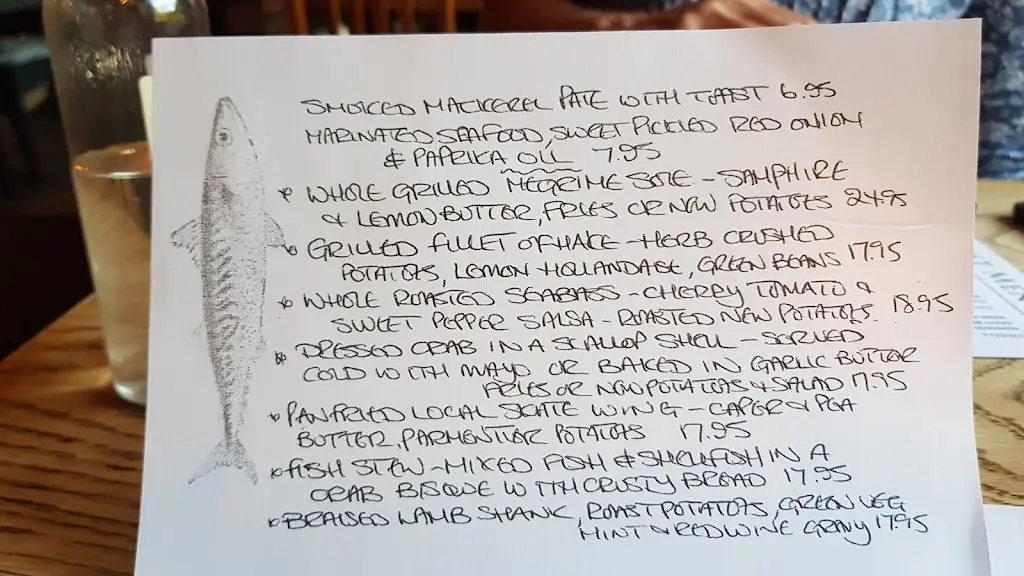 SMOKED MACKEREL PATE WITH TOAST 6.95
MARINATED SEAFOOD, SWEET PICKLED RED ONION
& PAPRIKA OIL 7.95
* WHOLE GRILLED MEGRIME SOLE - SAMPHIRE
& LEMON BUTTER, FRIES OR NEW POTATOES 24.95
* GRILLED FILLET OF HAKE - HERB CRUSHED
POTATOES, LEMON HOLLANDAISE, GREEN BEANS 17.95
* WHOLE ROASTED SEABASS - CHERRY TOMATO &
SWEET PEPPER SALSA - ROASTED NEW POTATOES 18.95
* DRESSED CRAB IN A SCALLOP SHELL - SERVED
COLD WITH MAYO OR BAKED IN GARLIC BUTTER
FRIES OR NEW POTATOES & SALAD 17.95
* PANFRIED LOCAL SKATE WING - CAPER & PEA
BUTTER, PARMENTIER POTATOES 17.95
* FISH STEW - MIXED FISH & SHELLFISH IN A
CRAB BISQUE WITH CRUSTY BREAD 17.95
* BRAISED LAMB SHANK, ROAST POTATOES, GREEN VEG
MINT & RED WINE GRAVY 17.95